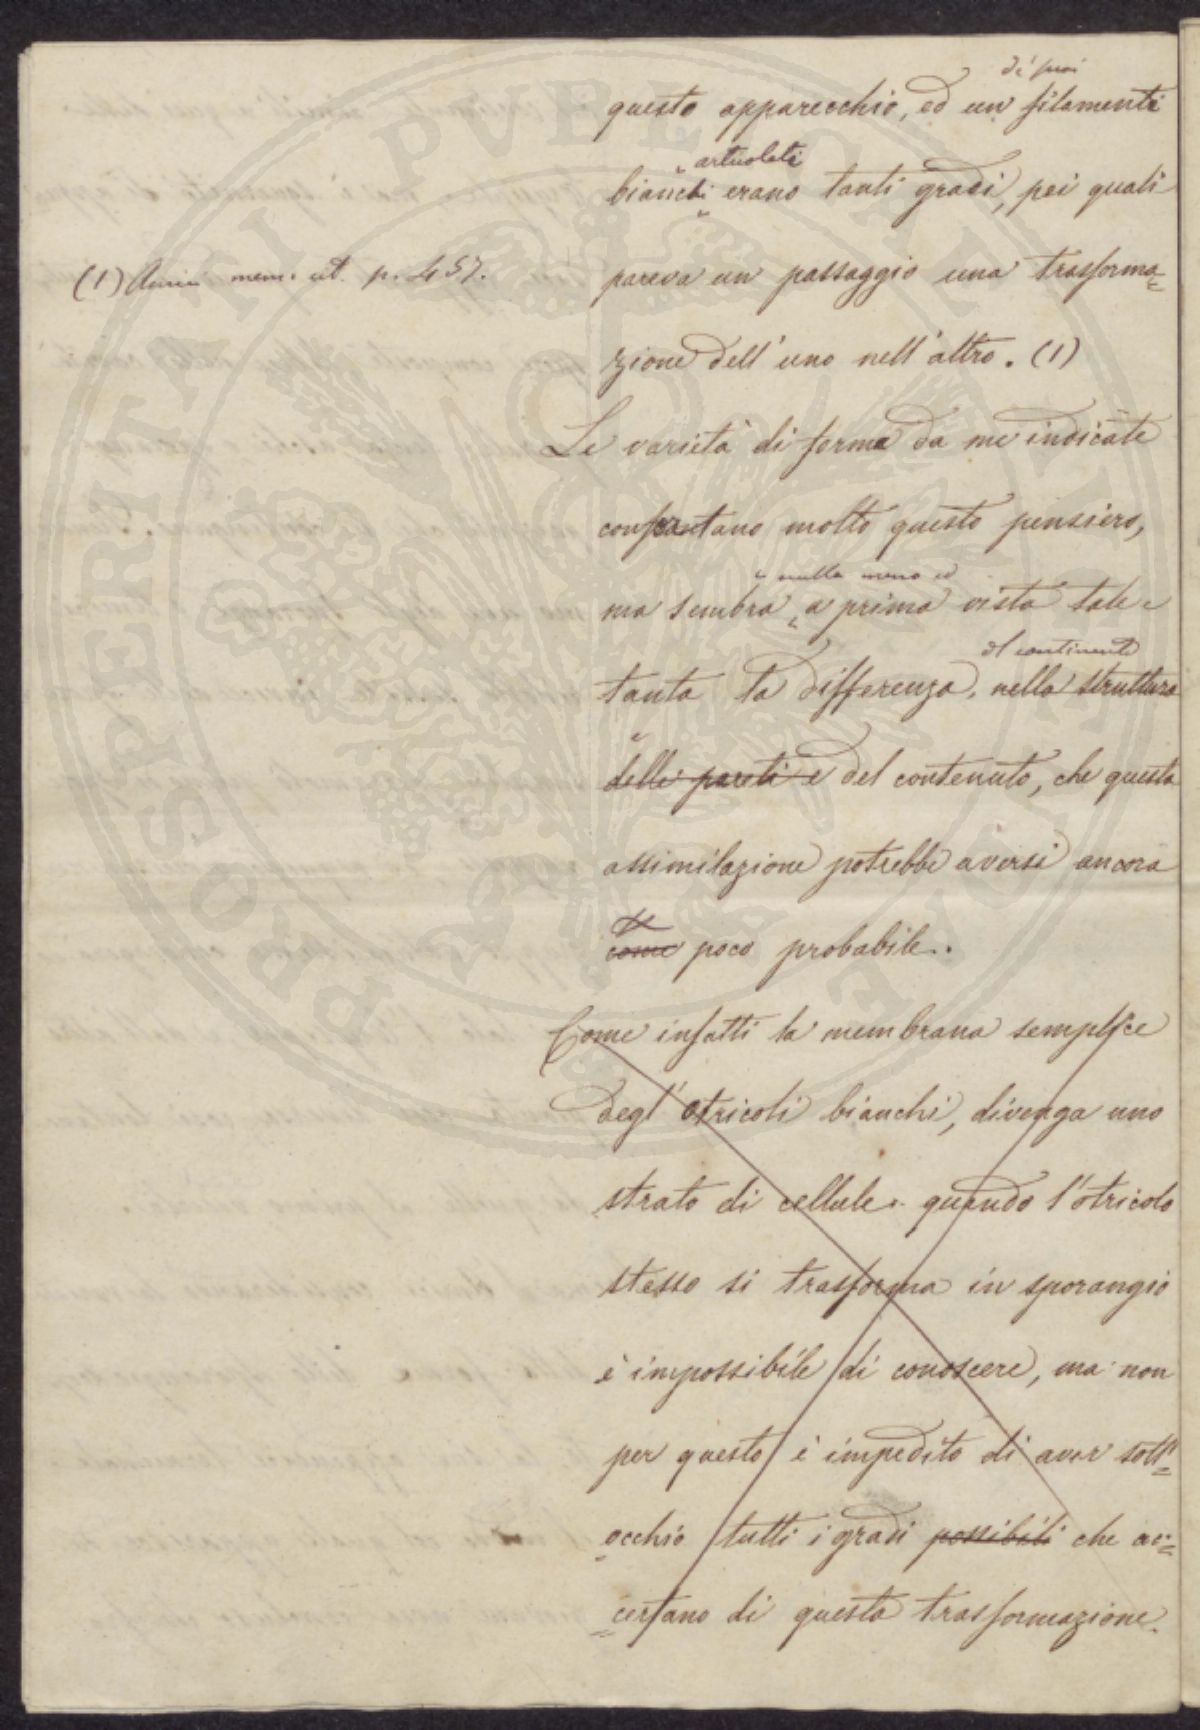 di poi
questo apparecchio, ed un filamenti
articolati
bianchi erano tanti gradi, pei quali
(1) Amici mem. cit. p. 457.
pareva un passaggio una trasforma=
zione dell'uno nell'altro. (1)
Le varietà di forma da me indicate
confortano molto questo pensiero,
nulla meno
ma sembra a prima vista tale e
il continente
tanta la differenza, nella struttura
delle pareti e del contenuto, che questa
assimilazione potrebbe aversi ancora
come poco probabile.
Come infatti la membrana semplice
degl'otricoli bianchi, divenga uno
strato di cellule quando l'otricolo
stesso si trasforma in sporangio
è impossibile di conoscere, ma non
per questo è impedito di aver sott'=
occhio tutti i gradi possibili che ac=
certano di questa trasformazione.
PROSPERITATI PVBLICAE